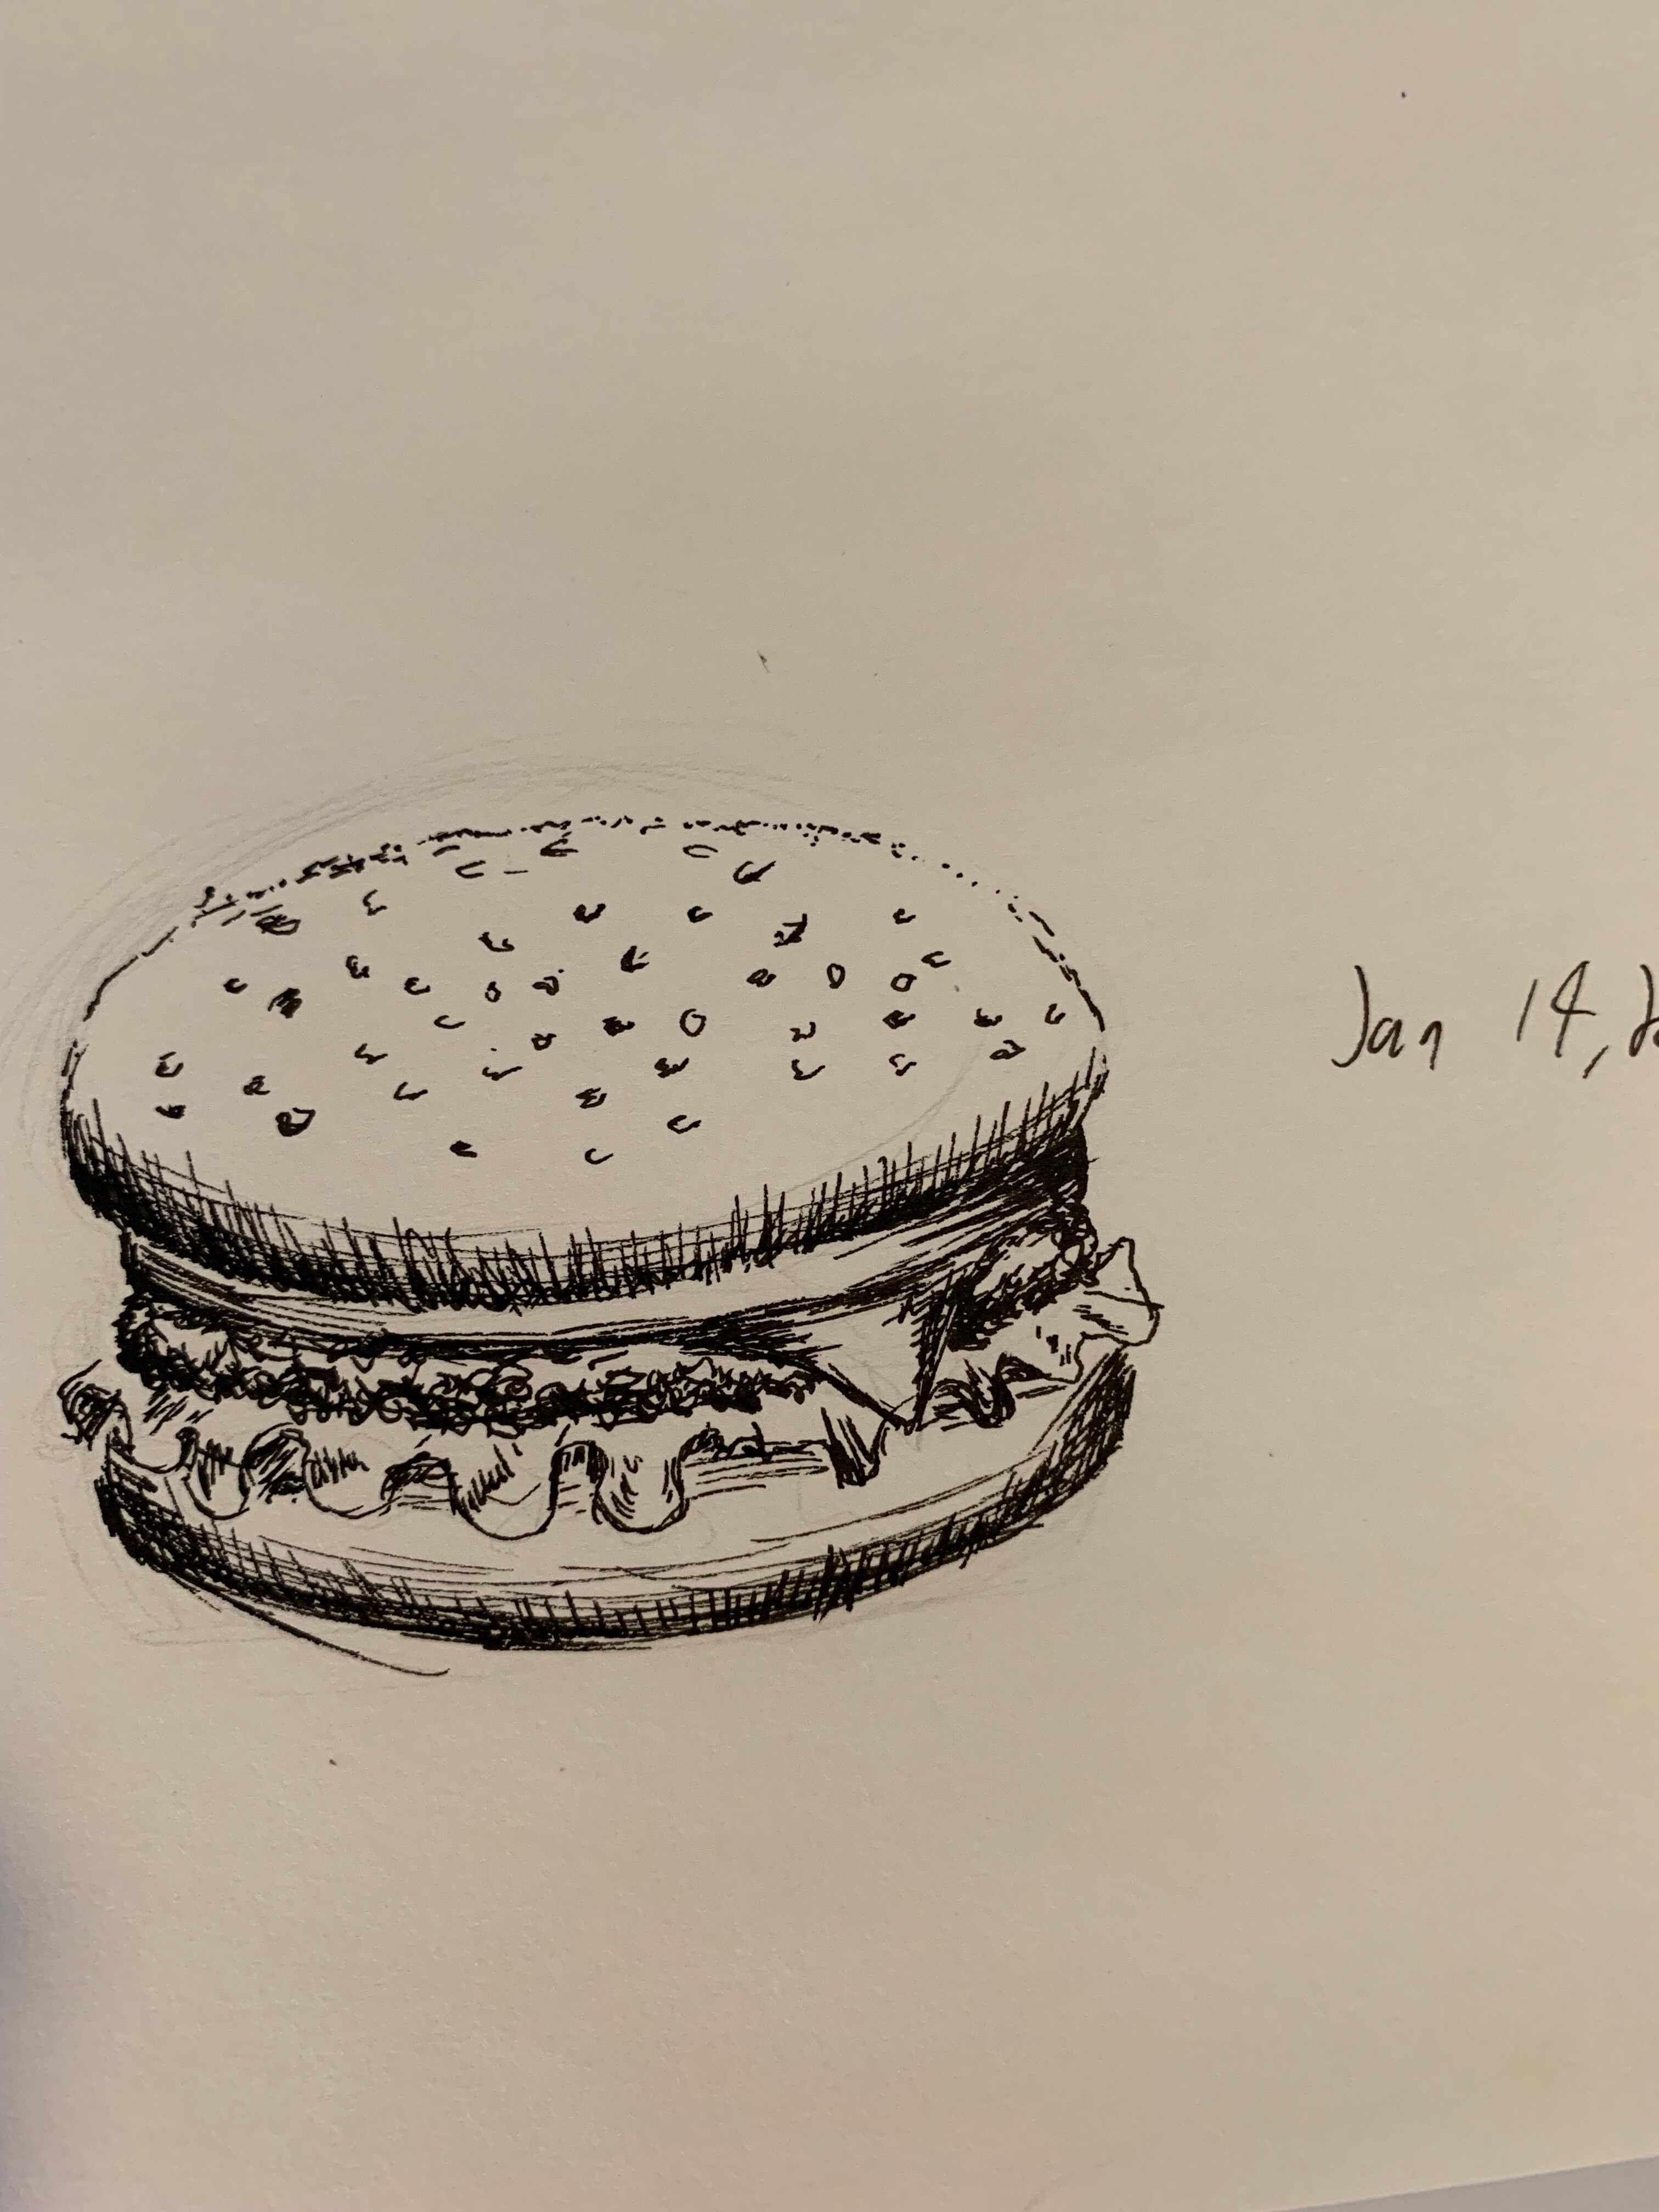 Jan 14, 2